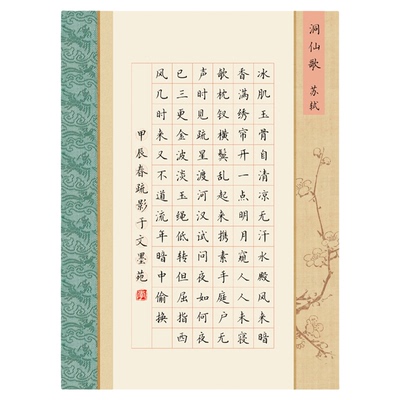 洞仙歌 苏轼
冰肌玉骨自清凉无汗水殿风来暗
香满绣帘开一点明月窥人人未寝
欹枕钗横鬓乱起来携素手庭户无
声时见疏星渡河汉试问夜如何夜
已三更金波淡玉绳低转但屈指西
风几时来又不道流年暗中偷换
甲辰春疏影于文墨苑